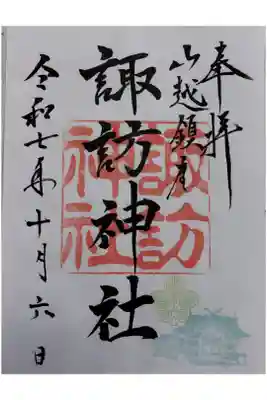 奉拝
山越鎮座
諏訪神社
諏訪神社
令和七年十月六日